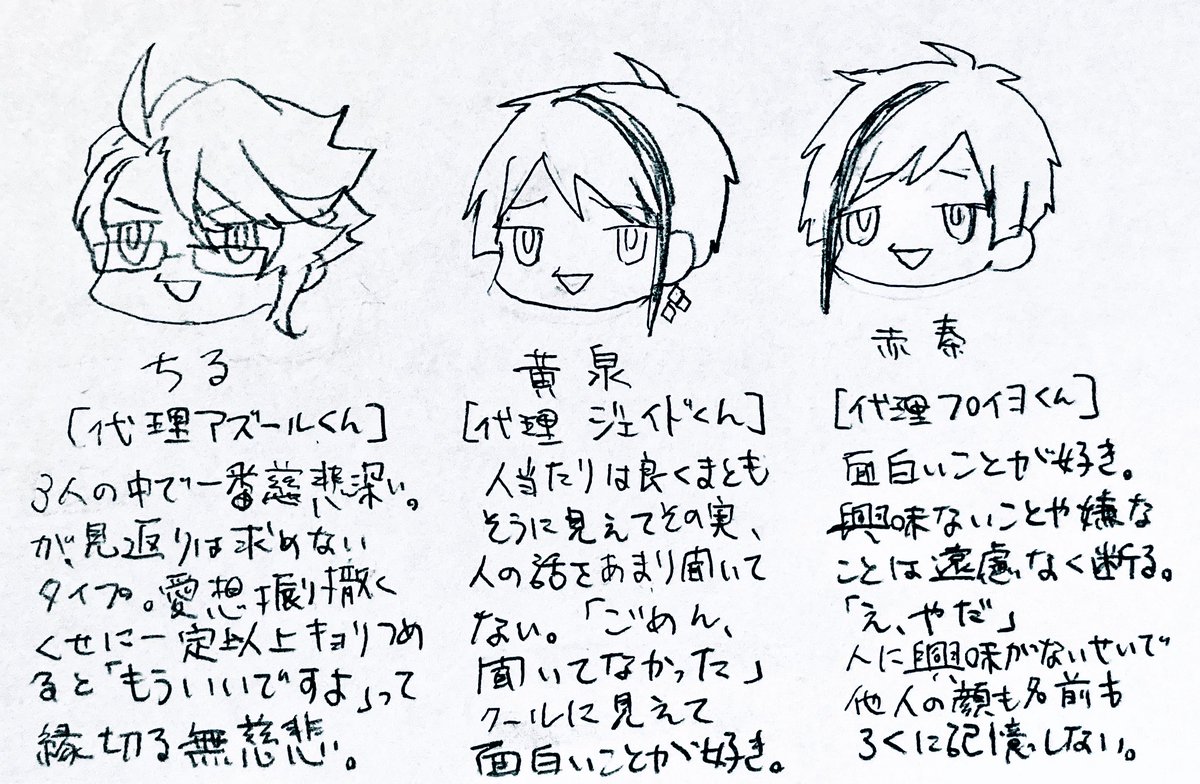 ちる
[代理アズールくん]
3人の中で一番慈悲深い。
が、見返りは求めない
タイプ。愛想振り撤く
くせに一定以上キョリつめ
ると「もういいですよ」って
縁切る無慈悲。
黄泉
[代理 ジェイドくん]
人当たりは良くまとも
そうに見えてその実、
人の話をあまり聞いて
ない。「ごめん、
聞いてなかった」
クールに見えて
面白いことが好き。
赤秦
[代理フロイヨくん]
面白いことが好き。
興味ないことや嫌な
ことは遠慮なく断る。
「え、やだ」
人に興味がないせいで
他人の顔も名前も
ろくに記憶しない。